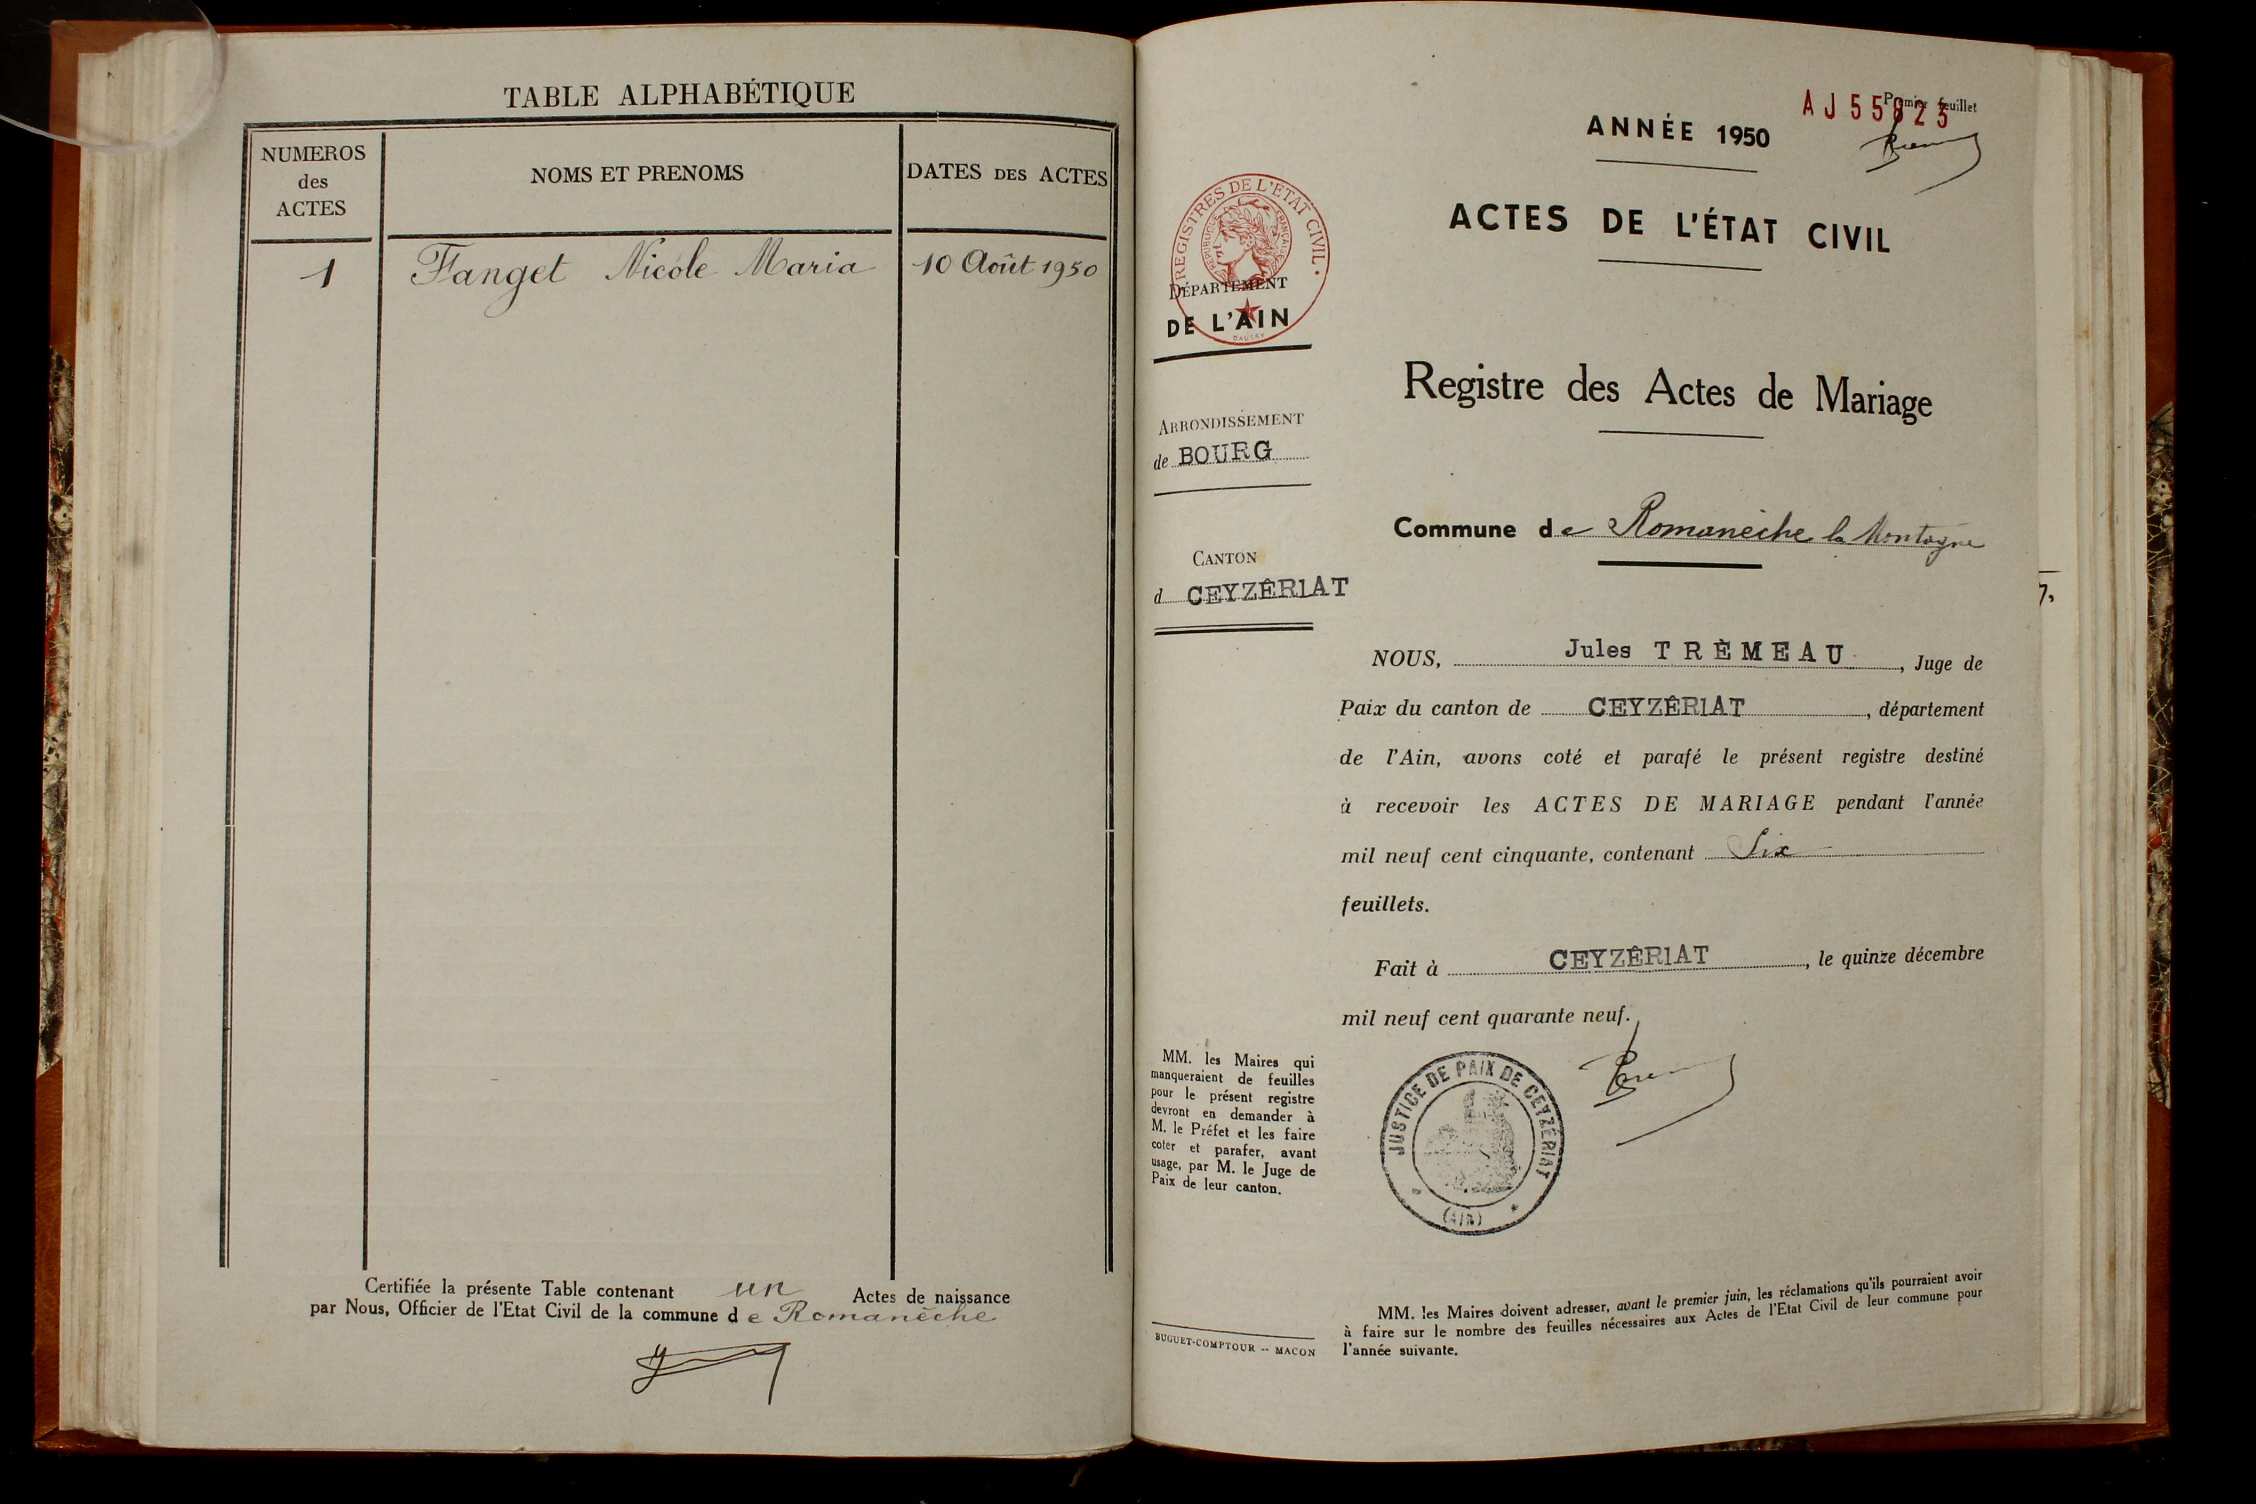 TABLE ALPHABÉTIQUE
NUMEROS
des
ACTES
NOMS ET PRENOMS
DATES DES ACTES
1 Fanget Nicole Maria 10 Août 1950
Certifiée la présente Table contenant un Actes de naissance
par Nous, Officier de l'Etat Civil de la commune de Romanèche
Premier feuillet
AJ55823
ANNÉE 1950
REGISTRES DE L'ETAT CIVIL
REPUBLIQUE FRANÇAISE
DÉPARTEMENT
DE L'AIN
ACTES DE L'ÉTAT CIVIL
Registre des Actes de Mariage
ARRONDISSEMENT
de BOURG
Commune de Romanèche la Montagne
CANTON
d CEYZÊR1AT
7,
NOUS, Jules TRÈMEAU, Juge de
Paix du canton de CEYZÊR1AT, département
de l'Ain, avons coté et parafé le présent registre destiné
à recevoir les ACTES DE MARIAGE pendant l'année
mil neuf cent cinquante, contenant Six
feuillets.
Fait à CEYZÊR1AT, le quinze décembre
mil neuf cent quarante neuf.
JUSTICE DE PAIX DE CEYZÉRIAT
(AIN)
MM. les Maires qui
manqueraient de feuilles
pour le présent registre
devront en demander à
M. le Préfet et les faire
coter et parafer, avant
usage, par M. le Juge de
Paix de leur canton.
BUGUET-COMPTOUR -- MACON
MM. les Maires doivent adresser, avant le premier juin, les réclamations qu'ils pourraient avoir
à faire sur le nombre des feuilles nécessaires aux Actes de l'Etat Civil de leur commune pour
l'année suivante.